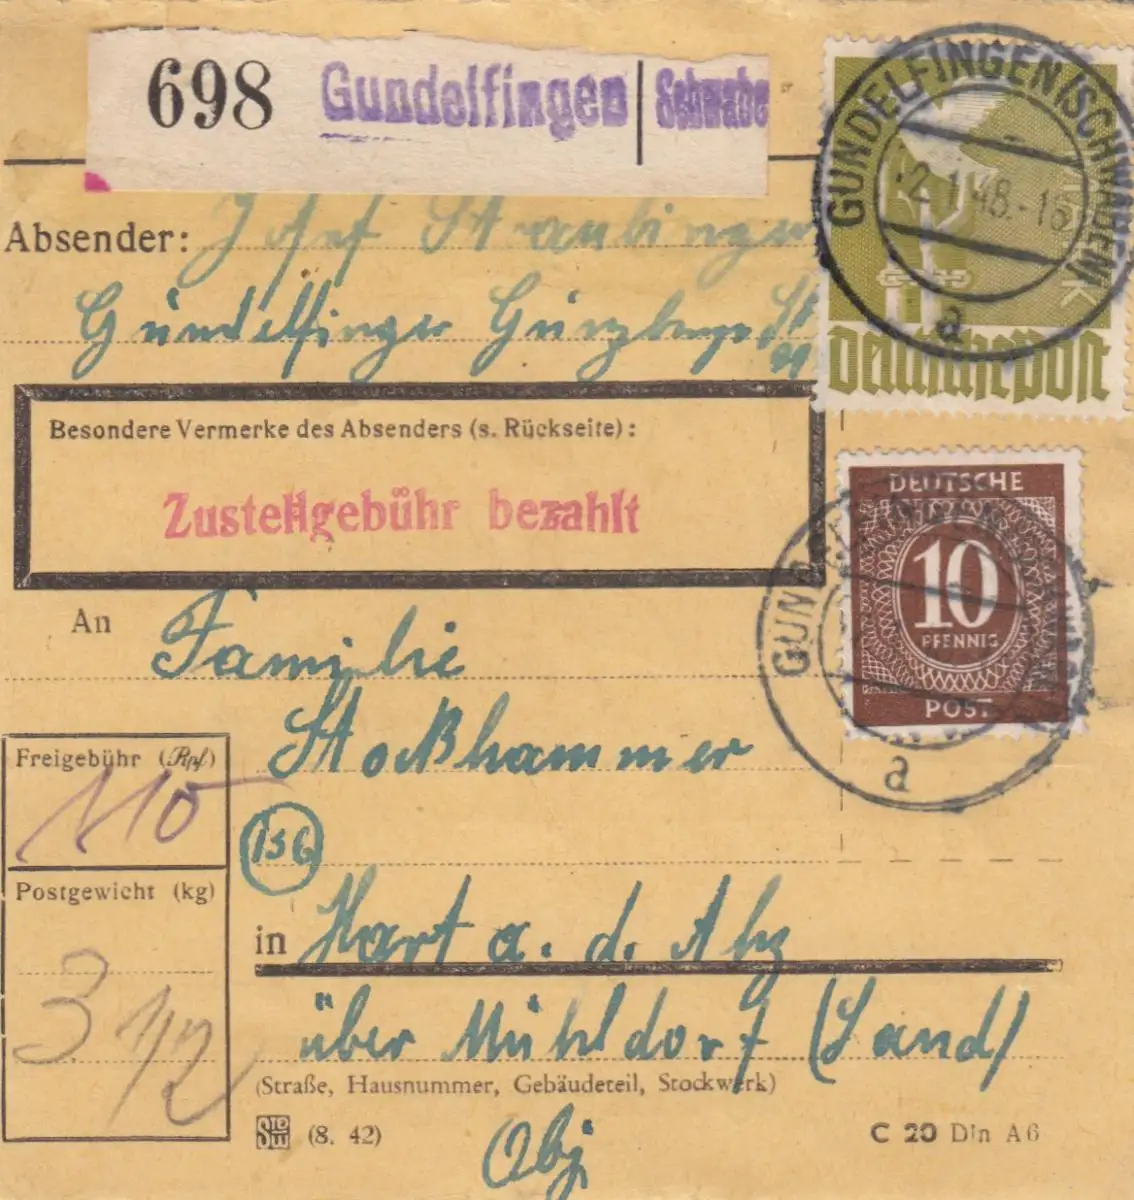 698 Gundelfingen Schwabe
GUNDELFINGEN (SCHWABEN)
2.1.48.-18
a
MARK
Deutsche Post
Absender: Josef Straubinger
Gundelfingen
Besondere Vermerke des Absenders (s. Rückseite):
Zustellgebühr bezahlt
DEUTSCHE
10
PFENNIG
POST
a
An Familie
Stoßhammer
Freigebühr (Rpf)
110
(13b)
Postgewicht (kg)
3 1/2
in Hart a. d. Alz
über Mühldorf (Land)
(Straße, Hausnummer, Gebäudeteil, Stockwerk)
(8. 42)
C 20 Din A6
Obj